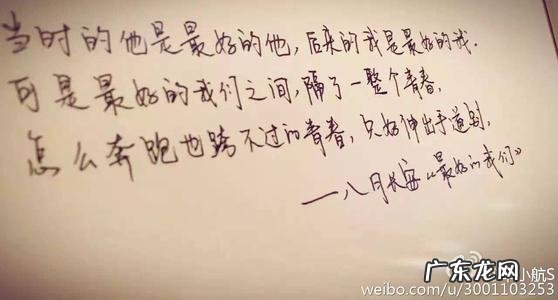 当时的他是最好的他，后来的我是最好的我.
可是最好的我们之间，隔了一整个青春.
怎么奔跑也跨不过的青春，只好伸出手道别.
—八月长安《最好的我们》
小航S
weibo.com/u/3001103253
广东龙网